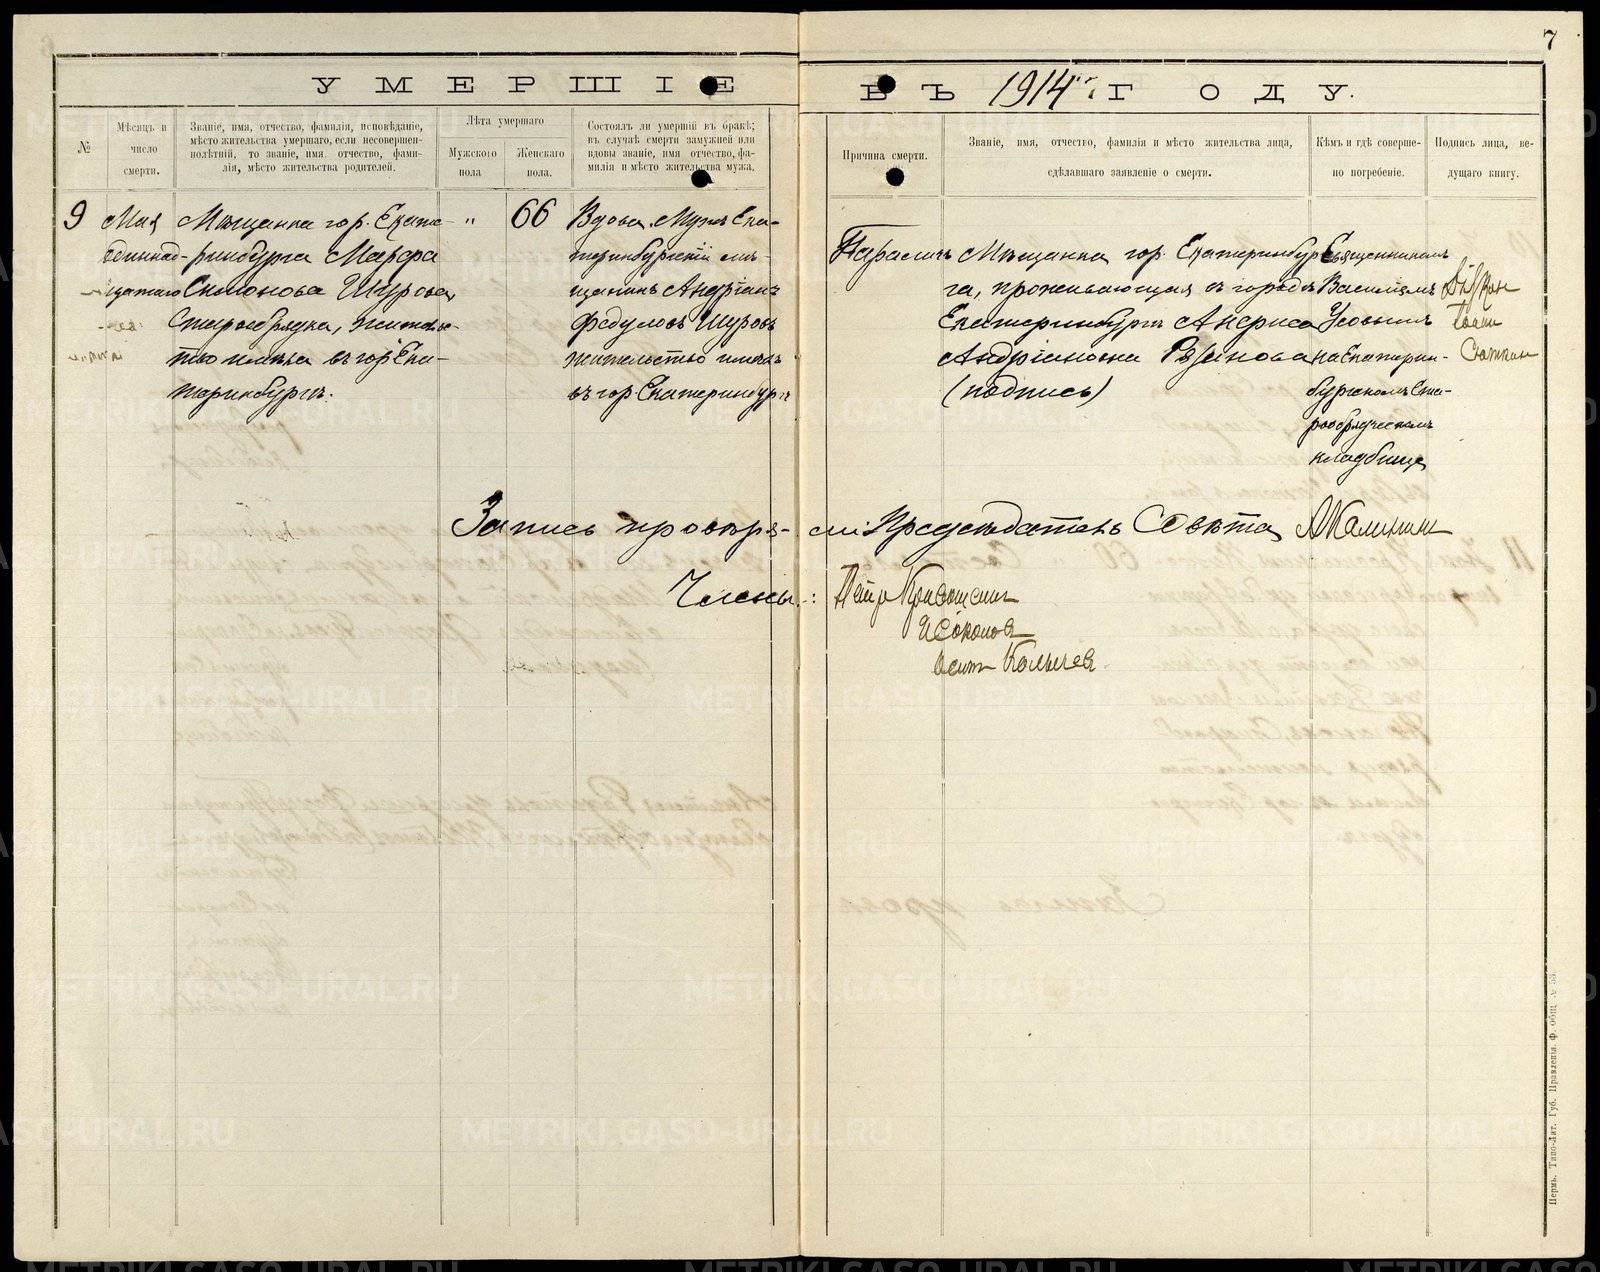 7
УМЕРШІЕ ВЪ 1914 ГОДУ.
№
Мѣсяцъ и
число
смерти.
Званіе, имя, отчество, фамилія, исповѣданіе,
мѣсто жительства умершаго, если несовершен-
нолѣтній, то званіе, имя отчество, фами-
лія, мѣсто жительства родителей.
Лѣта умершаго
Мужского
пола
Женскаго
пола.
Состоялъ ли умершій въ бракѣ;
въ случаѣ смерти замужней или
вдовы званіе, имя отчество, фа-
милія и мѣсто жительства мужа.
Причина смерти.
Званіе, имя, отчество, фамилія и мѣсто жительства лица,
сдѣлавшаго заявленіе о смерти.
Кѣмъ и гдѣ соверше-
но погребеніе.
Подпись лица, ве-
дущаго книгу.
9
Мая
одиннад-
цатаго
Мѣщанка гор. Екате-
ринбурга Марфа
Симонова Шурова,
Старообрядка, житель-
ство имѣла въ гор. Ека-
теринбургѣ.
"
66
Вдова. Мужъ Ека-
теринбургскій мѣ-
щанинъ Андріанъ
Федуловъ Шуровъ
жительство имѣлъ
въ гор Екатеринбургѣ
Параличъ
Мѣщанка гор. Екатеринбур
га, проживающая въ городѣ
Екатеринбургѣ
Андріановна
(подпись)
Священникомъ
Василіемъ
Усовымъ
на Екатерин-
бургскомъ Ста-
рообрядческомъ
кладбищѣ
Запись провѣря- ли: Предсѣдатель Совѣта АКалинин
Члены: Петр
ИСоколов
Осип
METRIKI.GASO-URAL.RU
Пермь. Типо-Лит. Губ. Правленія. Ф. общ. № 53.